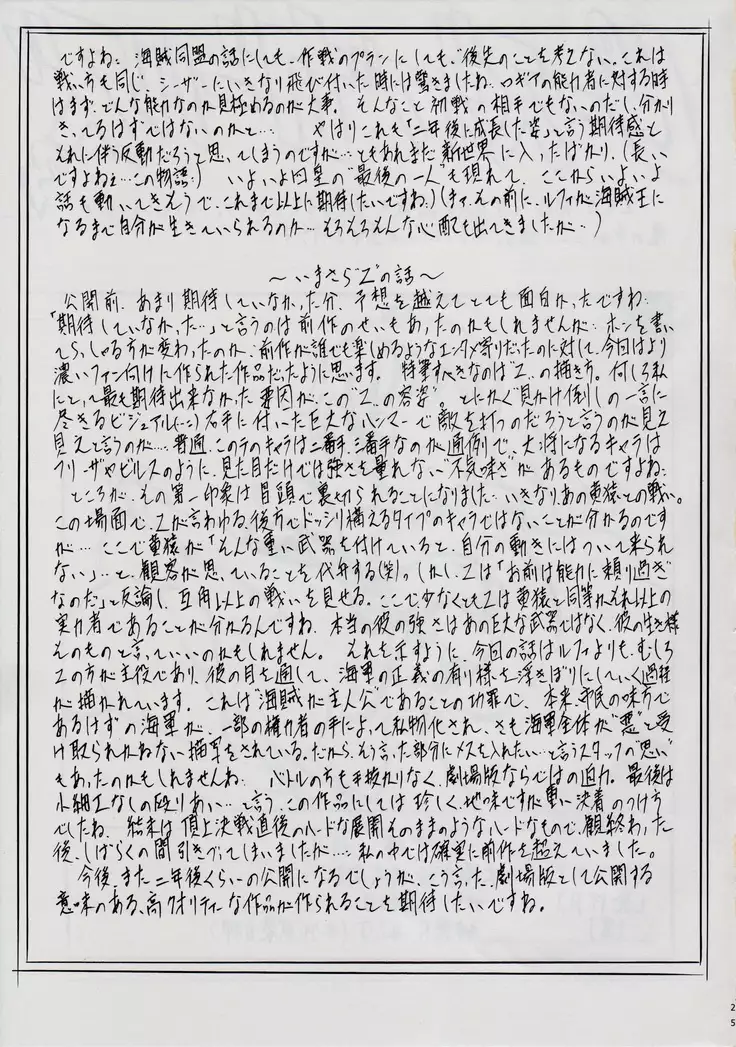 ですよね; 海賊同盟の話にしても、作戦のプランにしても、後先のことを考えない。これは
戦い方も同じ、シーザーにいきなり飛び付いた時には驚きましたね… ロギアの能力者に対する時
はまず、どんな能力なのか見極めるのが大事。 そんなこと初戦の相手でもないのだし、分かり
きってるはずではないのかと… やはりこれも「二年後に成長した姿」と言う期待感と
それに伴う反動だろうと思ってしまうのですが…ともあれまだ新世界に入ったばかり、(長い
ですよねェ…この物語;) いよいよ四皇の"最後の一人"も現れて、ここからいよいよ
話も動いてきそうで、これまで以上に期待したいですね;)(まァ、その前に、ルフィが海賊王に
なるまで自分が生きていられるのか…そろそろそんな心配も出てきましたが…)
〜いまさら"Z"の話〜
公開前、あまり期待していなかった分、予想を越えてとても面白かったですね;
「期待していなかった…」と言うのは前作のせいもあったのかもしれませんが…ホンを書い
てらっしゃる方が変わったのか、前作が誰でも楽しめるようなエンタメ寄りだったのに対して、今回はより
濃いファン向けに作られた作品だったように思います。 特筆すべきなのは"Z"の描き方。何しろ私
にとって最も期待出来なかった要因が、この"Zの容姿"。とにかく"見かけ倒し"の一言に
尽きるビジュアル(--;)右手に付いた巨大なハンマーで敵を打つのだろうと言うのが見え
見えと言うのが… 普通、このテのキャラは二番手、三番手なのが通例で、大将になるキャラは
フリーザやビルスのように、見た目だけでは強さを量れない"不気味さ"があるものですよね;
ところが、その第一印象は冒頭で裏切られることになりました…いきなり、あの黄猿との戦い。
この場面で、Zが言わゆる、後方でドッシリ構えるタイプのキャラではないことが分かるのです
が… ここで黄猿が「そんな重い武器を付けていると、自分の動きにはついて来られ
ない」…と、観客が思っていることを代弁する(笑)。しかし、Zは「お前は能力に頼り過ぎ
なのだ」と反論し、互角以上の戦いを見せる。ここで少なくともZは黄猿と同等かそれ以上の
実力者であることが分かるんですね、本当の彼の強さはあの巨大な武器ではなく、彼の生き様
そのものと言っていいのかもしれません。 それを示すように、今回の話はルフィよりも、むしろ
Zの方が主役であり、彼の目を通して、海軍の正義の有り様を浮きぼりにしていく過程
が描かれています。 これは"海賊が主人公"であることの功罪で、本来、市民の味方で
あるはずの海軍が、一部の権力者の手によって私物化され、さも海軍全体が"悪"と受
け取られかねない描写をされている。だから、そう言った部分にメスを入れたい…と言うスタッフの"思い"
もあったのかもしれませんね; バトルの方も手抜かりなく、劇場版ならではの迫力。最後は
小細工なしの殴りあい…と言う、この作品にしては珍しく、地味ですが重い決着のつけ方
でしたね… 結末は頂上決戦直後のハードな展開そのままのようなハードなもので、観終わった
後、しばらくの間引きづってしまいましたが…;私の中では確実に前作を超えていました。
今後、また二年後くらいの公開になるでしょうが、こう言った、劇場版として公開する
意味のある、高クオリティーな作品が作られることを期待したいですね。
2
5